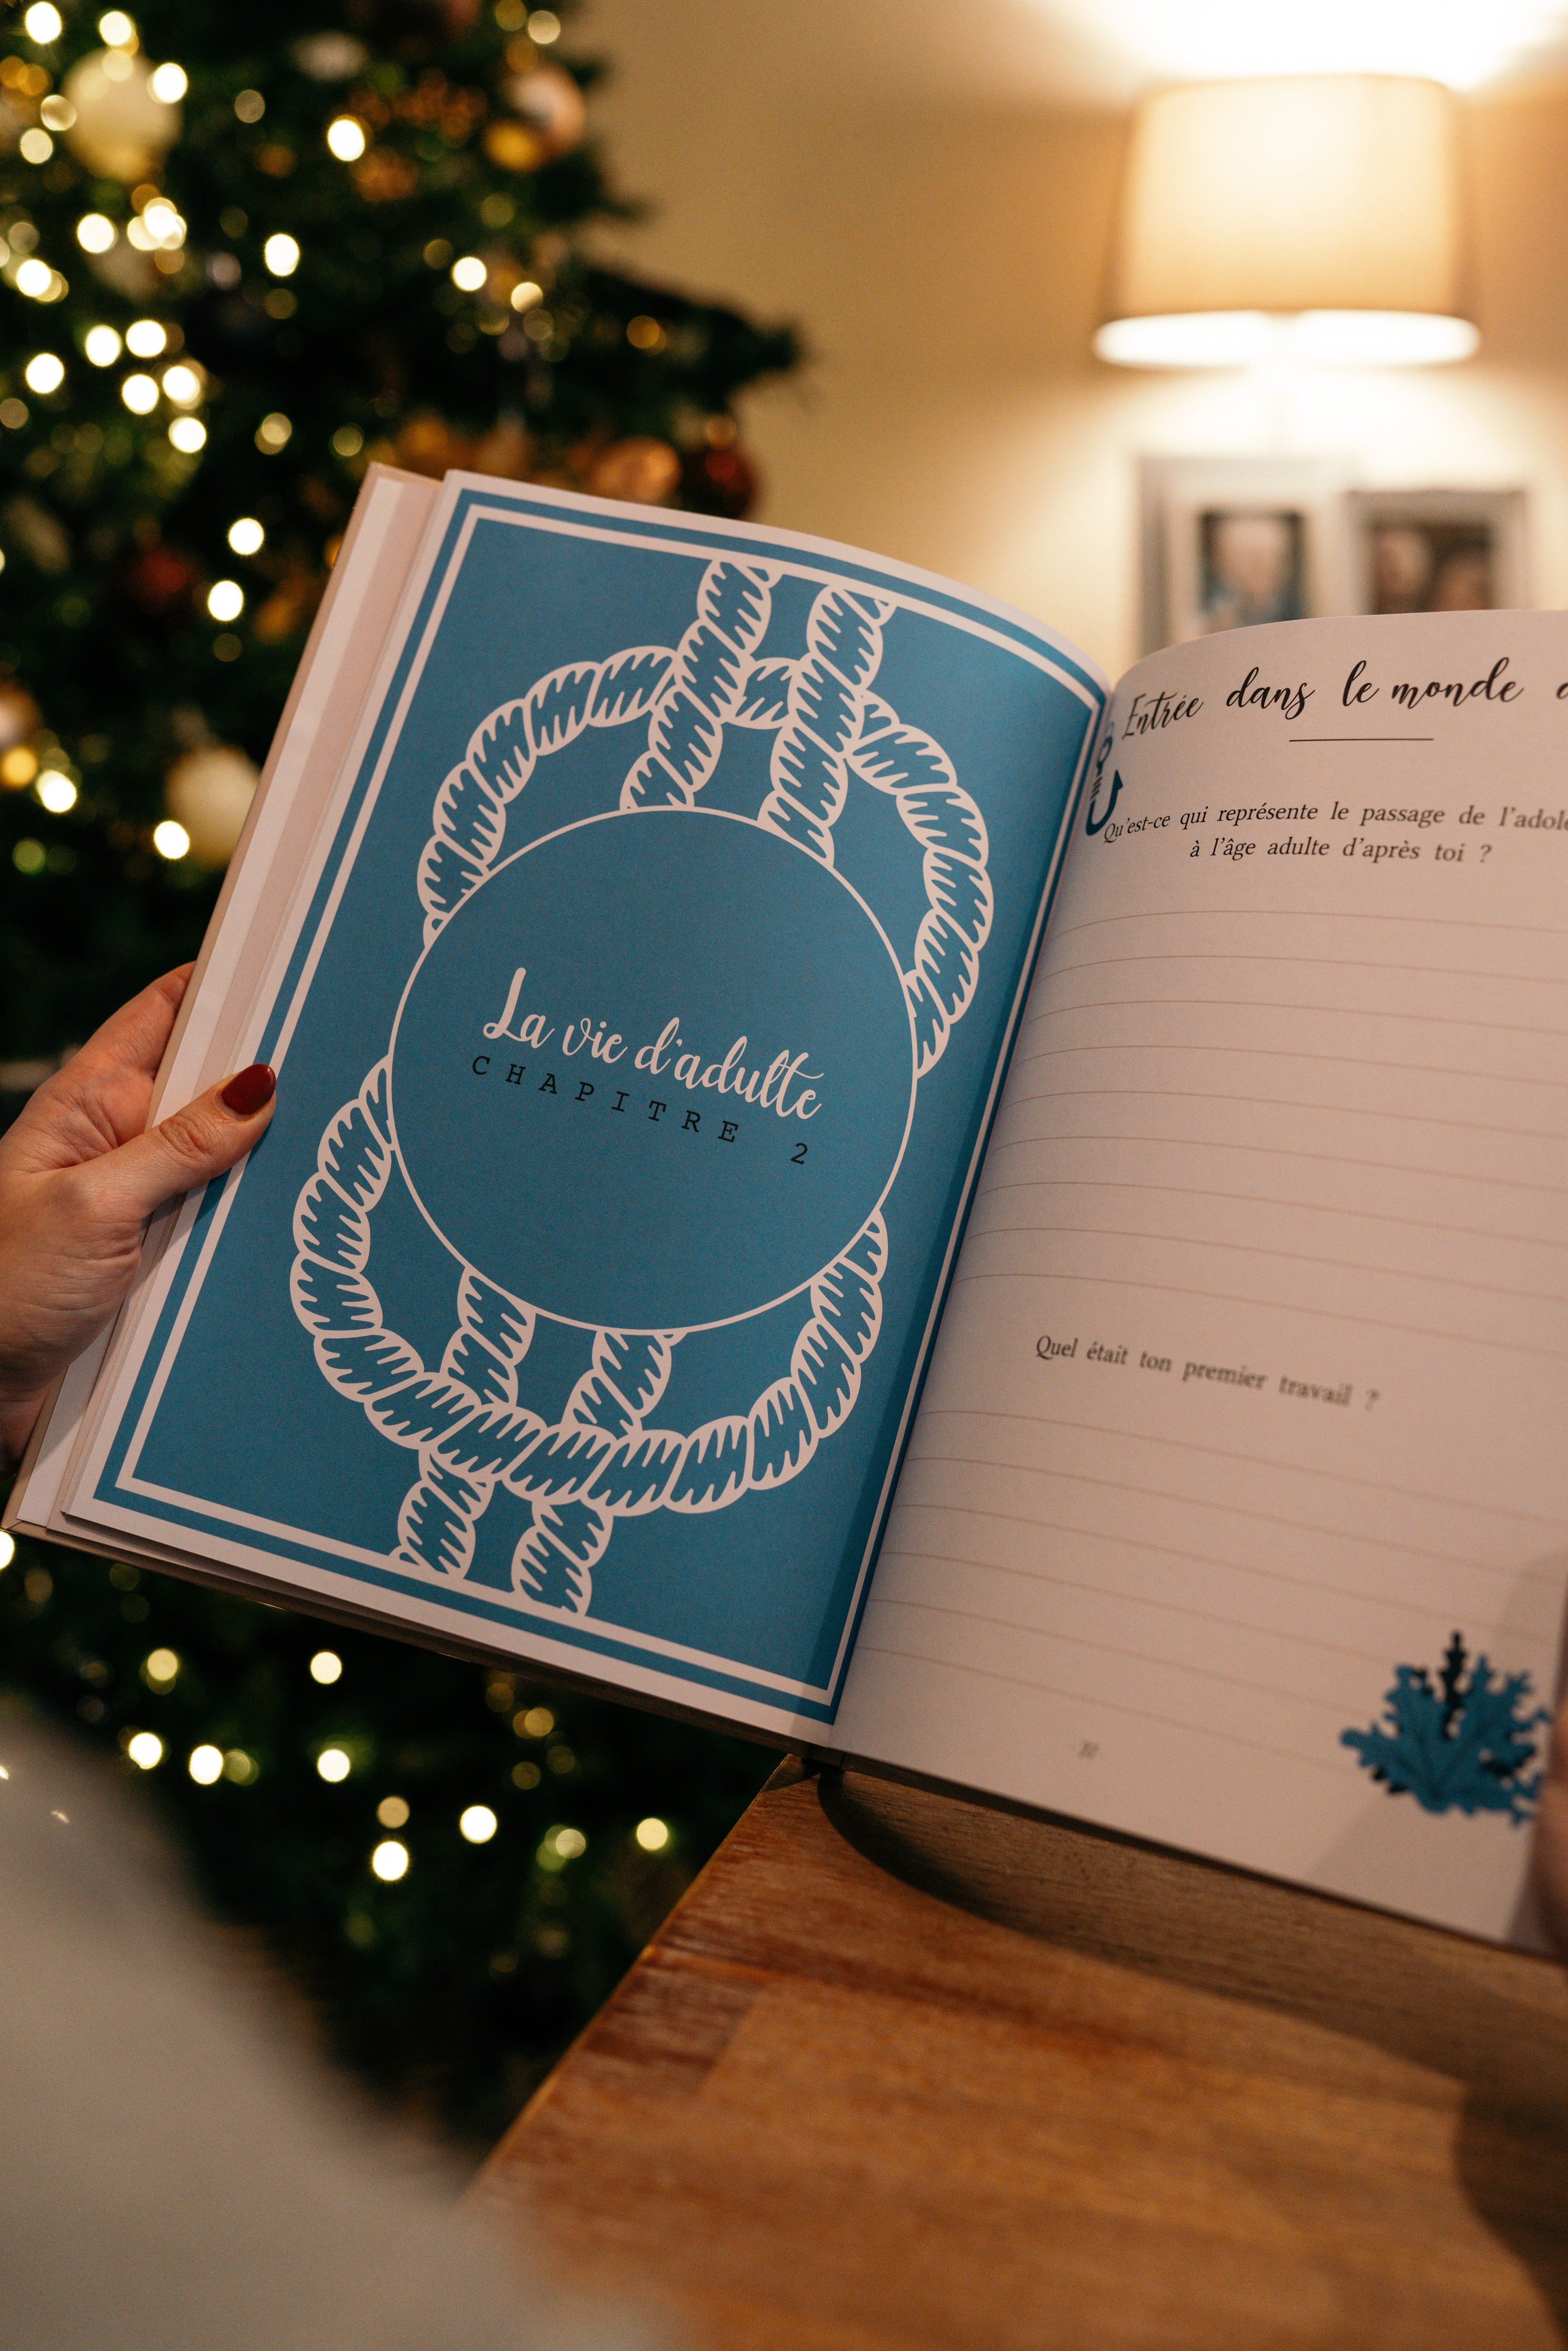 La vie d'adulte
CHAPITRE 2
Entrée dans le monde
Qu'est-ce qui représente le passage de l'adole
à l'âge adulte d'après toi ?
Quel était ton premier travail ?